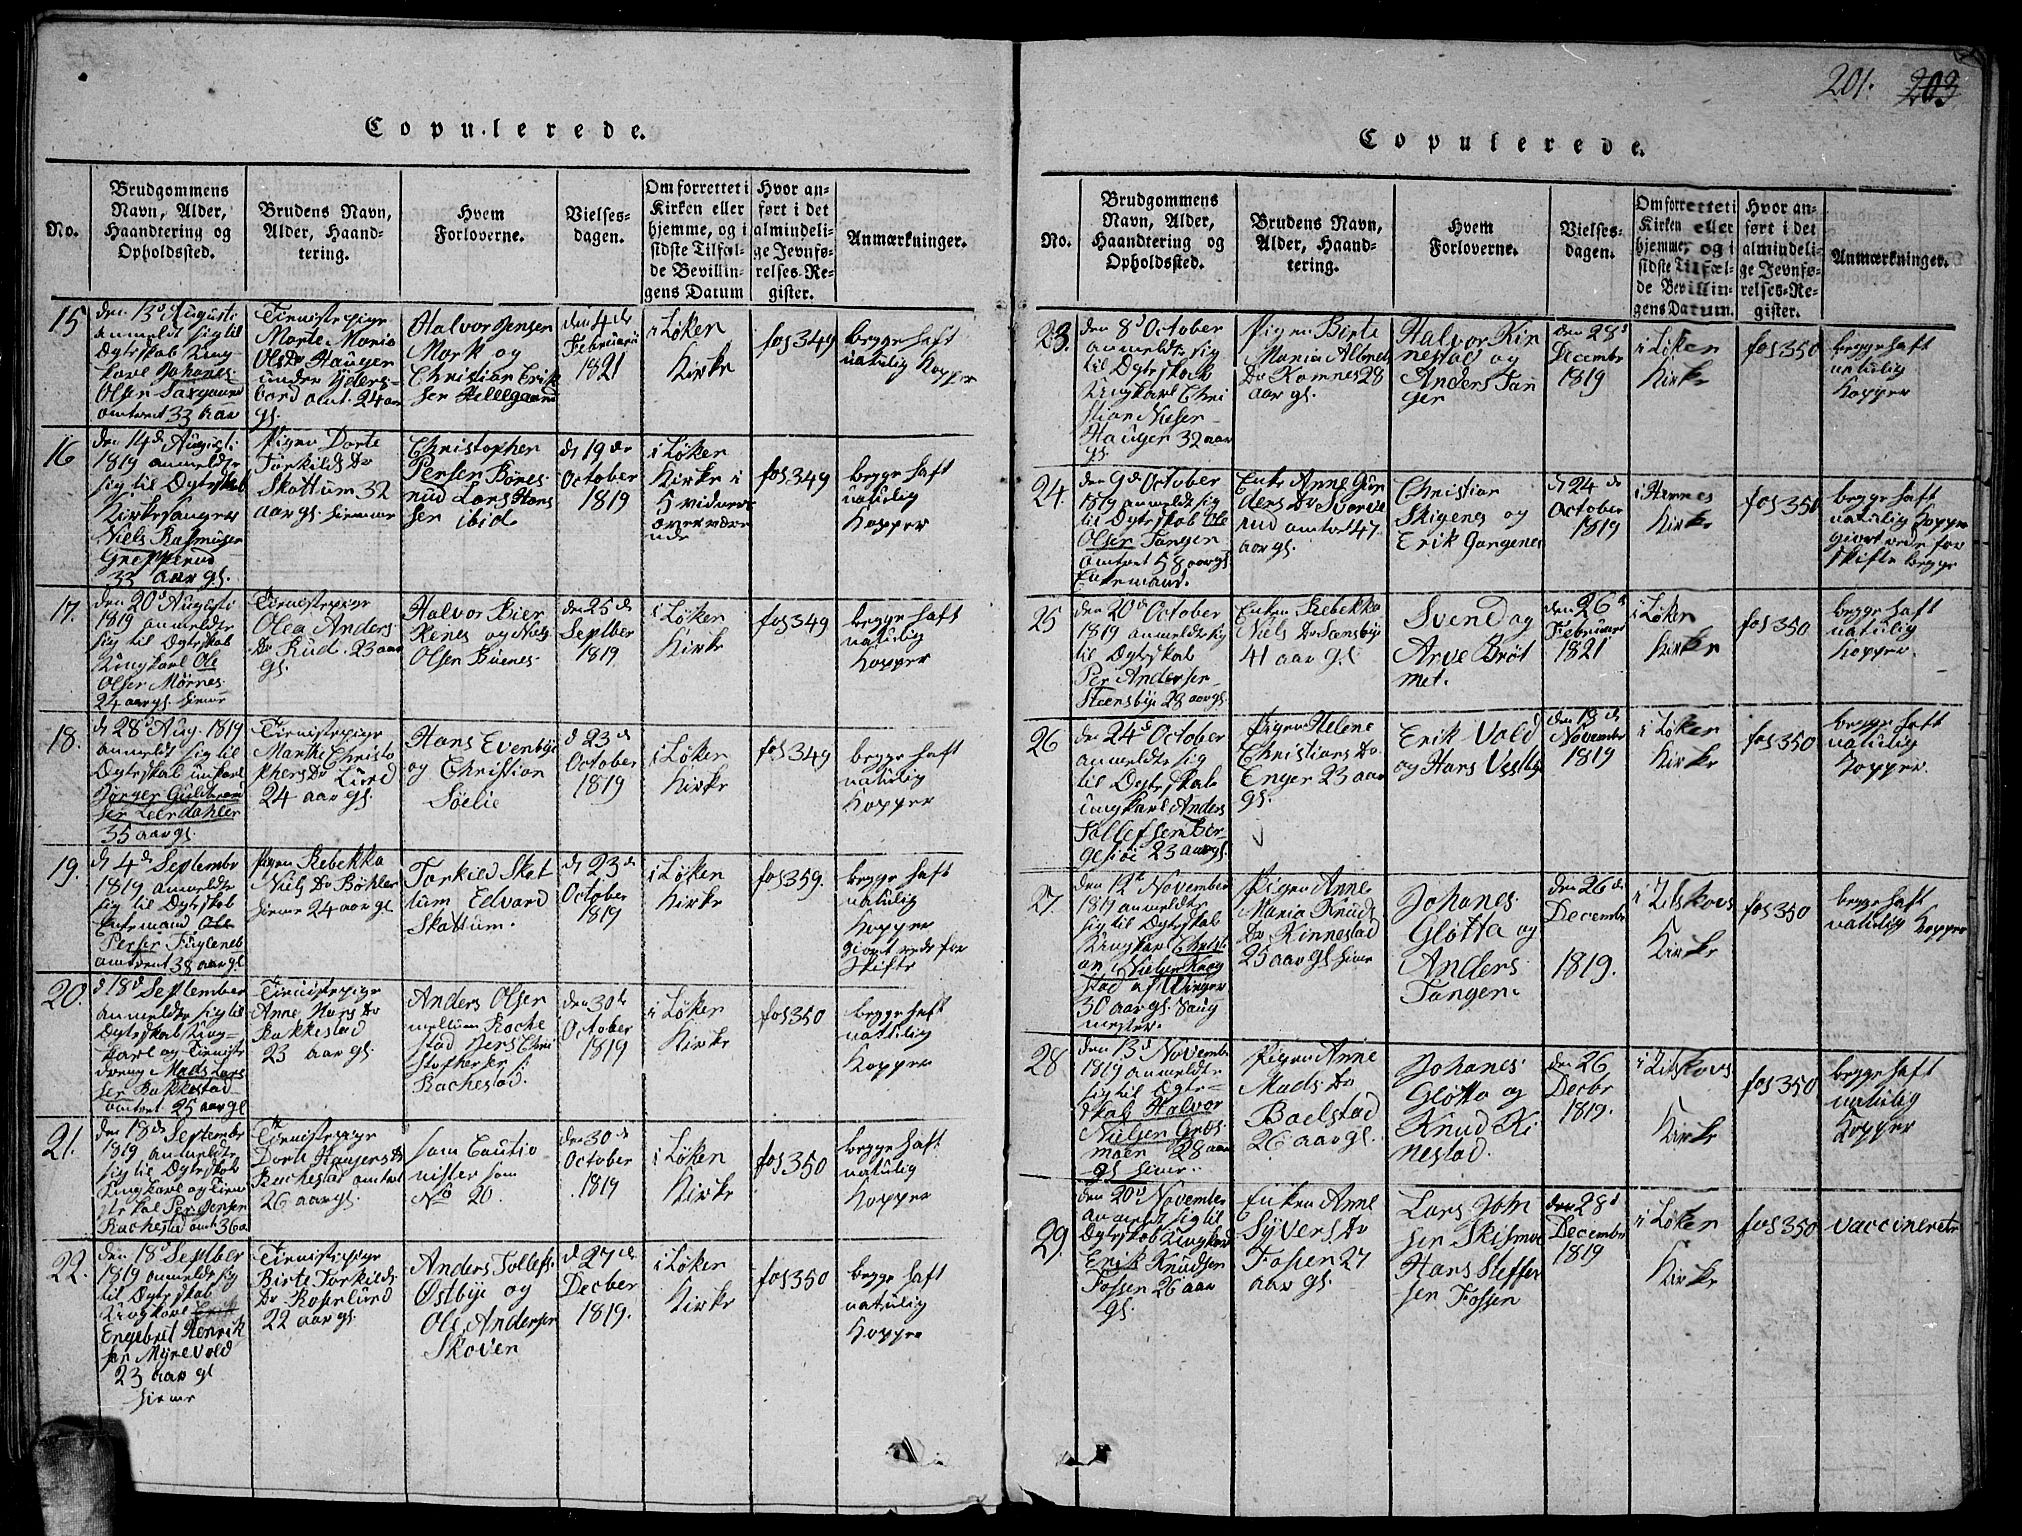 201. 203
Copulerede.
No.
Brudgommens
Navn, Alder,
Haandtering og
Opholdssted.
Brudens Navn,
Alder, Haand-
tering.
Hvem
Forloverne.
Vielses-
dagen.
Om forrettet i
Kirken eller
hjemme, og i
sidste Tilfæl-
de Bevillin-
gens Datum
Hvor an-
ført i det
almindeli-
ge Jevnfø-
relses-Re-
gister.
Anmærkninger.
15
den 13d Augusti
anmeldt sig til
Ægteskab Ung-
karl Johanes
Olsen
omtrent 33 aar
Tieneste pige
Marte Maria
Olsdr Hauger
under
omt. 24 aar
gl.
Halvor Jensen
Mork og
Christian Erik
sen
den 4de
Februari
1821
i Løken
Kirke
fol 349
begge haft
natulig Kopper
16
den 14de Augusti
1819 anmeldte
sig til Ægteskab
Kirkesanger
Niels Rasmusen
Grepperud
33 aar gl.
Pigen Dorte
Torkilds Dr
Skattum 32
aar gl. hieme
Christopher
Persen Børes-
rud Lars Hans
sen ibid
d 19de
October
1819
i Løken
Kirke i
5 vidners
overvære
nde
fol 349
begge haft
natulig
Kopper
17.
den 20d Augusti
1819 anmelder
sig til Ægteskab
Ungkarl Ole
Olsen Mørnes
24 aar gl. hieme
Tienestepige
Olea Anders
Dr Rud. 23 aar
gl.
Halvor Bier
kenes og Niels
Olsen Buenes.
den 25de
Septber
1819
i Løken
Kirke
fol 349
begge haft
natulig
Kopper
18.
d 28d Aug. 1819
anmeldt sig til
Ægteskab unkarl
Jørgen Guldbrand
sen Leerdahlen
35 aar gl
Tienistepige
Marthe Christo
phers Dr Lund
24 aar gl.
Hans Evenbye
og Christian
Søelie
d 23de
October
1819
i Løken
Kirke
fol 349
begge haft
natulig
Kopper
19.
d 4de Septembr
1819 anmeldte
sig til Ægteskab
Enkemand Ole
Persen Fuglenes
omtrent 38 aar gl
Pigen Rebekka
Niels Dr Bøhler
hieme 24 aar gl
Torkild Skat
tum Edvard
Skattum.
d 23de
October
1819
i Løken
Kirke
fol 359.
begge haft
natulig
Kopper
giort rede for
Skifte
20.
d 18d September
anmeldte sig til
Ægteskab Ung-
karl og Tieniste
dreng Mads Lars
sen Bakkestad
omtrent 25 aar gl
Tienistepige
Anne Hans Dr
Bakkestad
23 aar gl.
Anders Olsen
mellum Bache
stad Jens Chri
stophersen
Bachestad.
den 30te
October
1819
i Løken
Kirke
fol 350
begge haft
natulig
Kopper
21.
den 18de Septembr
1819 anmeldte
sig til Ægteskab
Ungkarl og Tiene
ste Karl Per Jensen
Bachestad omt 36 a
Tienistepige
Dorte Haagens Dr
Bachestad omtrent
26 aar gl.
Som Cautio
nister som
No 20.
den 30de
October
1819
i Løken
Kirke
fol 350
begge haft
natulig
Kopper
22.
den 18d Septber
1819 anmeldte sig
til Ægteskab
Ungkarl Erik
Engebret Henrik
sen Myrevold
23 aar gl
hieme
Tienistepige
Birte Torkilds
Dr Roserlund
22 aar gl.
Anders Tollefs.
Østbye og
Ole Andersen
Skoven
d 27de
Decber
1819.
i Løken
Kirke
fol 350
begge haft
natulig
Kopper
Copulerede.
No.
Brudgommens
Navn, Alder,
Haandtering og
Opholdssted.
Brudens Navn,
Alder, Haand-
tering.
Hvem
Forloverne.
Vielses-
dagen.
Om forrettet i
Kirken eller
hjemme, og i
sidste Tilfæl-
de Bevillin-
gens Datum.
Hvor an-
ført i det
almindeli-
ge Jevnfø-
relses-Re-
gister.
Anmærkninger.
23.
den 8d October
anmeldte sig
til Ægteskab
Ungkarl Chri
stian Nielsen
Hauger 32 aar
gl.
Pigen Birte
Maria
Dr Komnes 28
aar gl.
Halvor Kin
nestad og
Anders Tan
gen
den 28d
Decembr
1819
i Løken
Kirke
fol 350
begge haft
natulig
Kopper
24.
den 9de October
1819 anmeldte sig
til Ægteskab Ole
Olsen Tangen
omtrent 58 aar gl
Enkemand.
Enke Anne Gun
ders Dr Svorve
rud omtrent 47
aar gl.
Christian
Skigenes og
Erik Gangenes
d 24de
October
1819
i Hernes
Kirke
fol 350
begge haft
natulig Kopper
giort rede for
Skifte begge
25
den 20de October
1819 anmeldte sig
til Ægteskab
Per Andersen
Steensbye 28 aar gl.
Enken Rebekka
Niels Dr Steensbye
41 aar gl
Svend og
Arve Brøt
met.
den 26d
Februari
1821
i Løken
Kirke
fol 350
begge haft
natulig
Kopper.
26
den 24d October
anmeldte sig
til Ægteskab
Ungkarl Anders
Tollefsen Ber-
gesiøe 23 aar gl.
Pigen Helene
Christians Dr
Enger 23 aar
gl.
Erik Vold
og Hans Vestby
den 18de
November
1819
i Løken
Kirke
fol 350
begge haft
natulig
Kopper.
27.
den 12te November
1819 anmeldte
sig til Ægteskab
Ungkarl Christi
an Nielsen Knap
stad af Vinger
30 aar gl. Saug
mester.
Pigen Anne
Maria Knuds
Dr Kinnestad
25 aar gl hieme
Johanes
Gløtta og
Anders
Tangen.
den 26de
Decembr
1819.
i Utskovs
Kirke
fol 350
begge haft
natulig Kopper
28
den 13d Novembr
1819 anmeldte
sig til Ægte-
skab Halvor
Nielsen Græs
moen 28 aar
gl hieme.
Pigen Anne
Mads Dr
Baelstad
26 aar gl.
Johanes
Gløtta og
Knud Ki
nestad.
den 26
Decbr
1819.
i Utskovs
Kirke
fol 350
begge haft
natulig
Kopper
29.
den 20d Novembr
anmeldt sig til
Ægteskab Ungkarl
Erik Knudsen
Fossen 26 aar
gl.
Enken Anne
Syvers Dr
Fossen 27
aar gl.
Lars John
sen Skismoe
Hans Steffen
sen Fossen
den 28d
December
1819
i Løken
Kirke
fol 350
vaccinerete